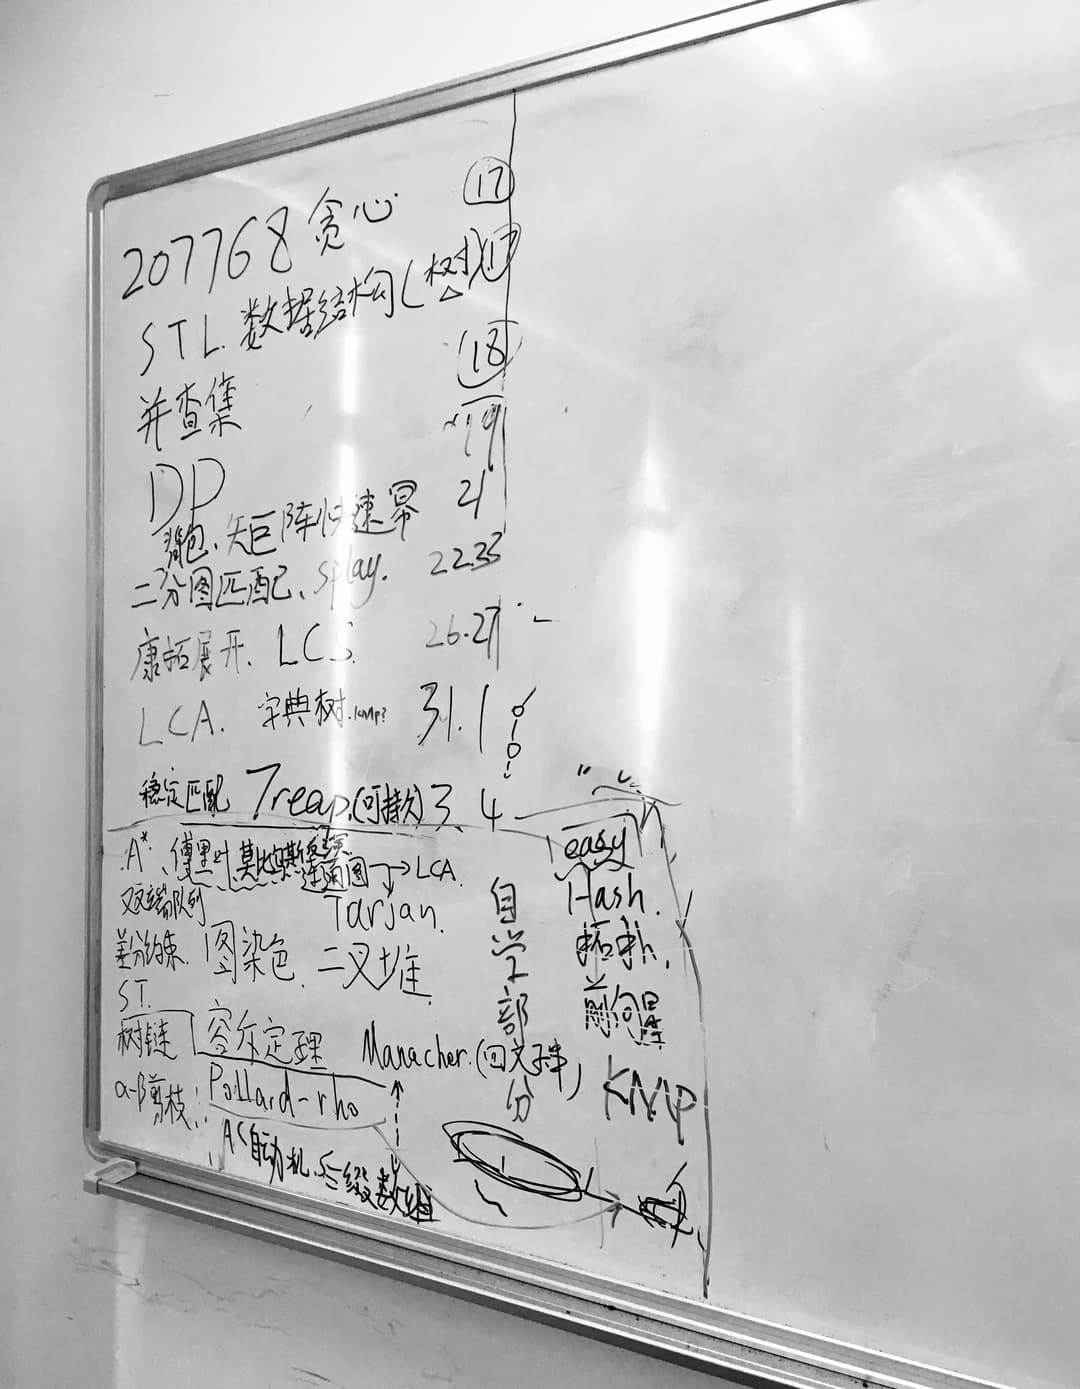 207768 贪心 17
STL 数据结构(树) 17
并查集 18
19
DP 21
背包、矩阵快速幂
二分图匹配、splay. 22.23
康拓展开、LCS 26.27
LCA. 字典树.KMP? 31.1
稳定匹配 Treap.(可持久) 3 4
A*、傅里叶 莫比乌斯反演
连通图→LCA.
双端队列 Tarjan.
差分约束 图染色 二叉堆
ST.
树链 容斥定理 Manacher.(回文子串)
α-β剪枝 Pollard-rho
AC自动机、后缀数组
自学部分
easy
Hash.
拓扑.
KMP